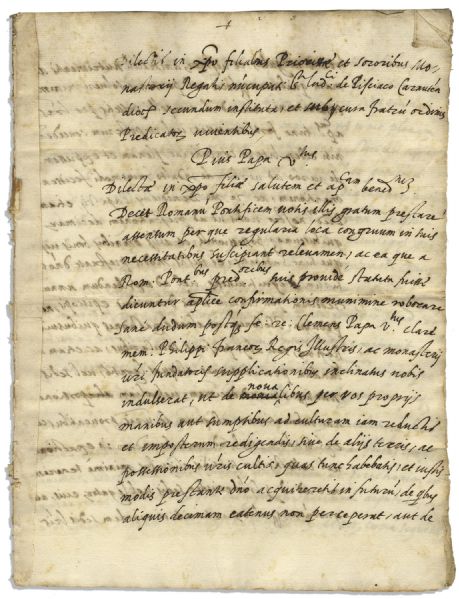 +
Dilectis in xpo filiabus Priorissæ et Sororibus Mo-
nasterij Regalis nūcupat: Sti Lud:ci de Pisciaco Carnuten
dioc: secundum instituta, et sub cura fratrū ordinis
Predicator viventibus
Pius Papa V.tus
Dilectæ in xpo filiæ salutem et ap:cam bened:nem
Decet Romanū Pontificem votis illis gratum prestare
assensum per que regularia loca congruum in suis
necessitatibus suscipiant relevamen, ac ea que a
Rom: Pont:bus pred:oribus suis provide statuta fuisse
dicuntur aplice confirmationis munimine roborare
sane dudum postq. fe: re: Clemens Papa V.tus clare
mem: Philippi Francor Regis Illustris, ac monasterij
vri fundatoris supplicationibus inclinatus vobis
indulserat, ut de nova libus per vos proprijs
manibus aut sumptibus ad culturam iam redactis
et imposterum redigendis, sive de alijs terris, ac
possessionibus vris cultis, quas tunc habebatis, et iustis
modis prestante dno acquireretis in futurū, de qbus
aliquis decimam eatenus non perceperat, aut de